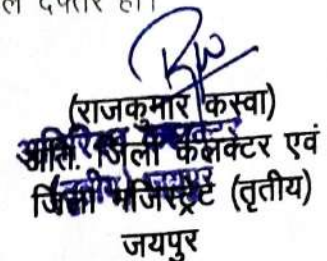 दफ्तर हो।
(राजकुमार कस्वा)
अति. जिला कलक्टर एवं
जिला मजिस्ट्रेट (तृतीय)
जयपुर